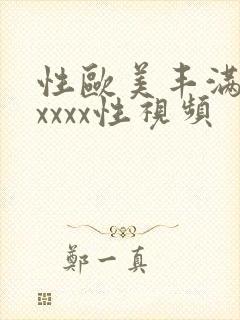 性歐美丰滿
xxxx性視頻
鄭一真